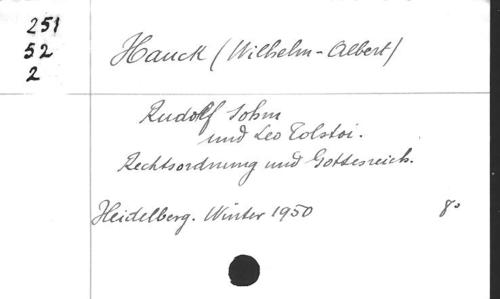 251
52
2
Hauck (Wilhelm-Albert)
Rudolf Sohm
und Leo Tolstoi.
Rechtsordnung und Gottesreich.
Heidelberg. Winter 1950 8°